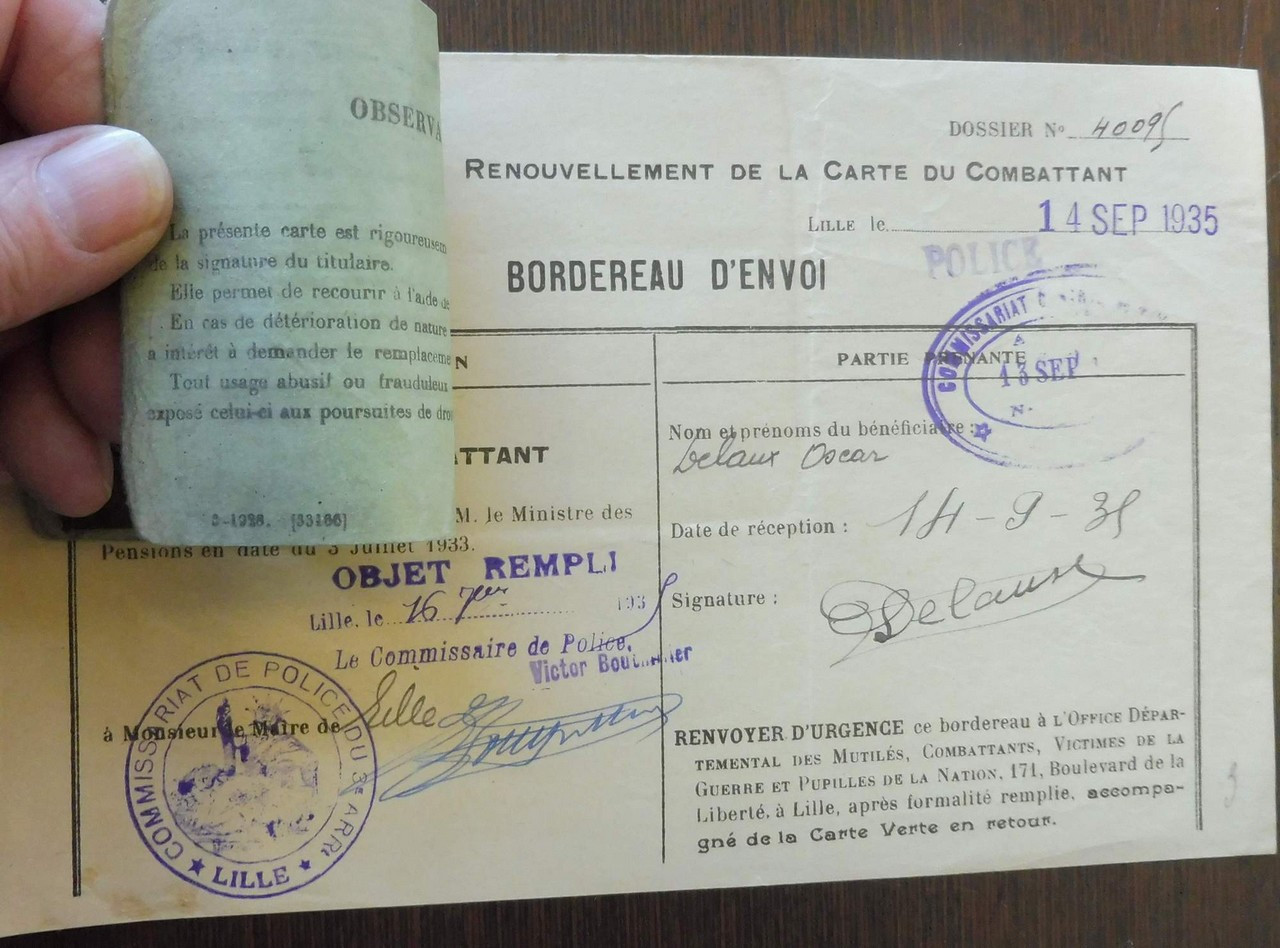 OBSERVA
La présente carte est rigoureusem
de la signature du titulaire.
Elle permet de recourir à l'aide de
En cas de détérioration de nature
a intérêt à demander le remplaceme
Tout usage abusif ou frauduleux
exposé celui-ci aux poursuites de dro
-1928. [33166]
DOSSIER N° 40095
RENOUVELLEMENT DE LA CARTE DU COMBATTANT
LILLE le 14 SEP 1935
POLICE
BORDEREAU D'ENVOI
N
ATTANT
M. le Ministre des
Pensions en date du 3 Juillet 1933.
OBJET REMPLI
Lille, le 16 7bre 1935
Le Commissaire de Police,
Victor
à Monsieur le Maire de Lille
COMMISSARIAT DE POLICE DU 3e ARRt
★ LILLE ★
PARTIE PRENANTE
COMMISSARIAT
13 SEP
Nom et prénoms du bénéficiaire :
Delaux Oscar
Date de réception : 14-9-35
Signature : Delaux
RENVOYER D'URGENCE ce bordereau à L'OFFICE DÉPAR-
TEMENTAL DES MUTILÉS, COMBATTANTS, VICTIMES DE LA
GUERRE ET PUPILLES DE LA NATION, 171, Boulevard de la
Liberté, à Lille, après formalité remplie, accompa-
gné de la Carte Verte en retour.